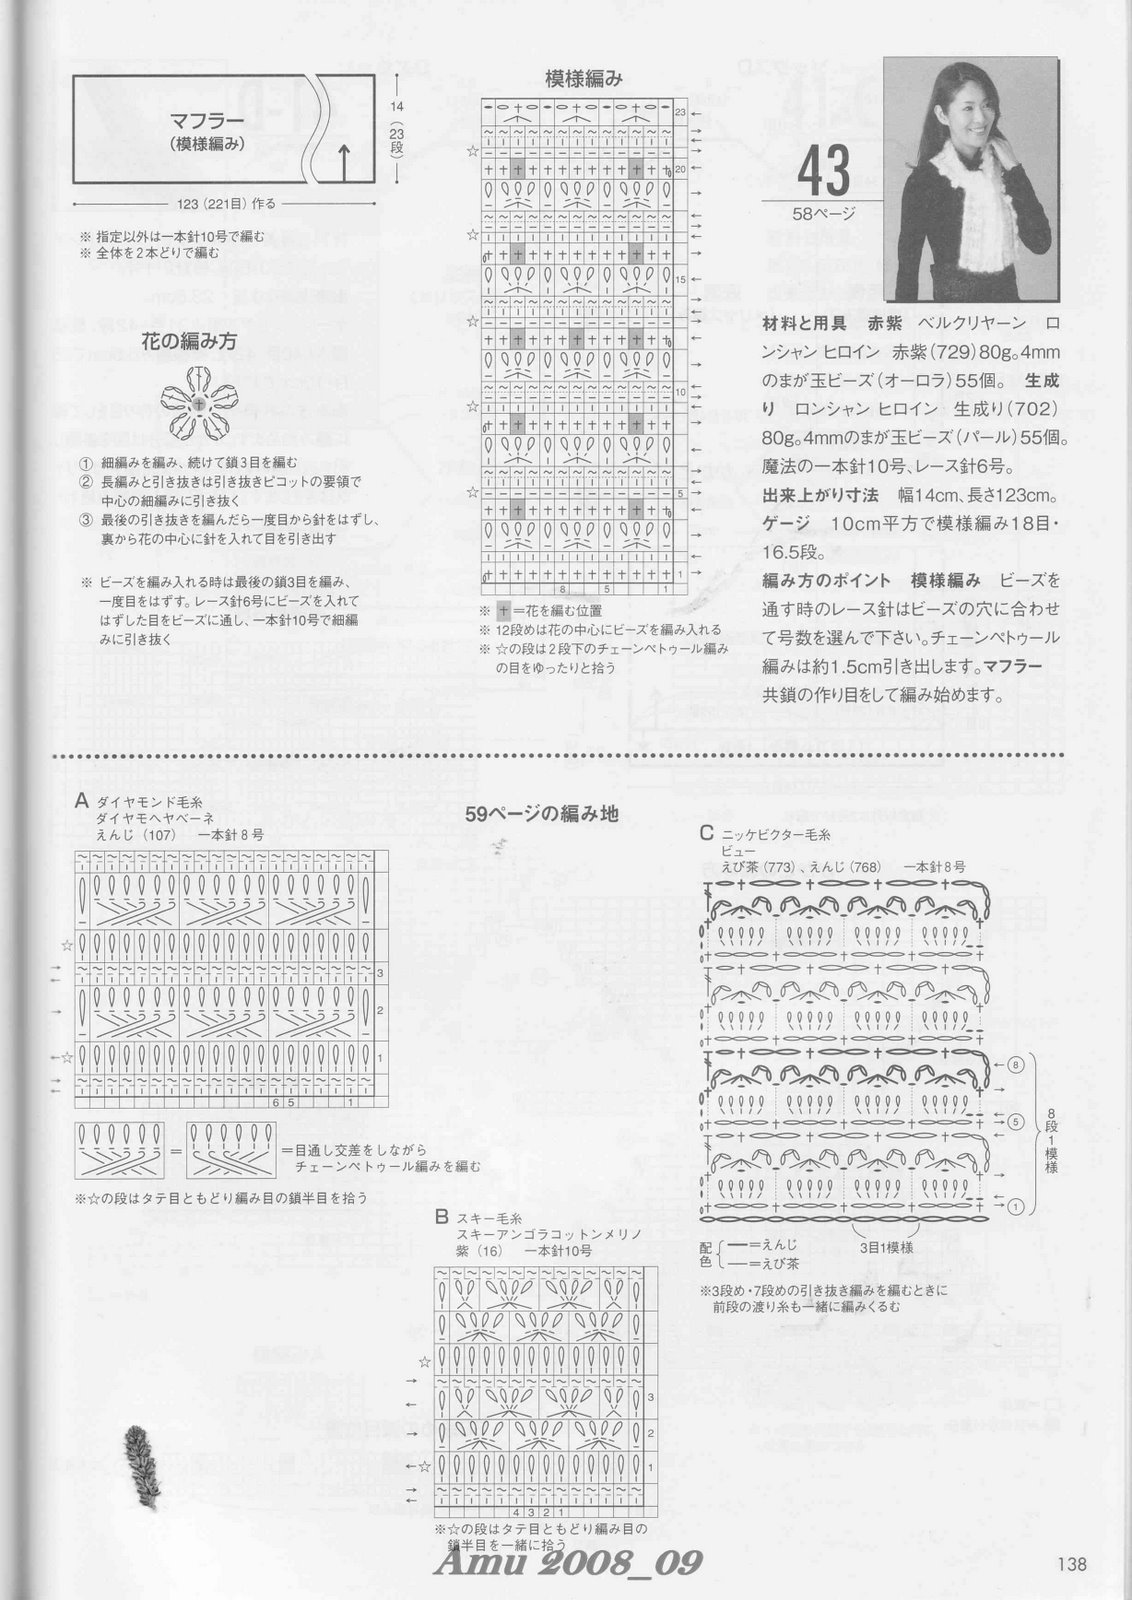 マフラー
(模様編み)
14
(23段)
123(221目)作る
※ 指定以外は一本針10号で編む
※ 全体を2本どりで編む
花の編み方
① 細編みを編み、続けて鎖3目を編む
② 長編みと引き抜きは引き抜きピコットの要領で
中心の細編みに引き抜く
③ 最後の引き抜きを編んだら一度目から針をはずし、
裏から花の中心に針を入れて目を引き出す
※ ビーズを編み入れる時は最後の鎖3目を編み、
一度目をはずす。レース針6号にビーズを入れて
はずした目をビーズに通し、一本針10号で細編
みに引き抜く
模様編み
23
20
15
10
5
1
8 5 1
※ =花を編む位置
※ 12段めは花の中心にビーズを編み入れる
※ ☆の段は2段下のチェーンペトゥール編み
の目をゆったりと拾う
43
58ページ
材料と用具 赤紫 ベルクリヤーン ロ
ンシャン ヒロイン 赤紫(729)80g。4mm
のまが玉ビーズ(オーロラ)55個。 生成
り ロンシャン ヒロイン 生成り(702)
80g。4mmのまが玉ビーズ(パール)55個。
魔法の一本針10号、レース針6号。
出来上がり寸法 幅14cm、長さ123cm。
ゲージ 10cm平方で模様編み18目・
16.5段。
編み方のポイント 模様編み ビーズを
通す時のレース針はビーズの穴に合わせ
て号数を選んで下さい。チェーンペトゥール
編みは約1.5cm引き出します。マフラー
共鎖の作り目をして編み始めます。
59ページの編み地
A ダイヤモンド毛糸
ダイヤモヘヤベーネ
えんじ(107) 一本針8号
☆
3
2
☆ 1
6 5 1
= =目通し交差をしながら
チェーンペトゥール編みを編む
※☆の段はタテ目ともどり編み目の鎖半目を拾う
B スキー毛糸
スキーアンゴラコットンメリノ
紫(16) 一本針10号
☆
3
2
☆ 1
4 3 2 1
※☆の段はタテ目ともどり編み目の
鎖半目を一緒に拾う
C ニッケビクター毛糸
ビュー
えび茶(773)、えんじ(768) 一本針8号
⑧
⑤
①
8段1模様
3目1模様
配色
=えんじ
=えび茶
※3段め・7段めの引き抜き編みを編むときに
前段の渡り糸も一緒に編みくるむ
Amu 2008_09
138